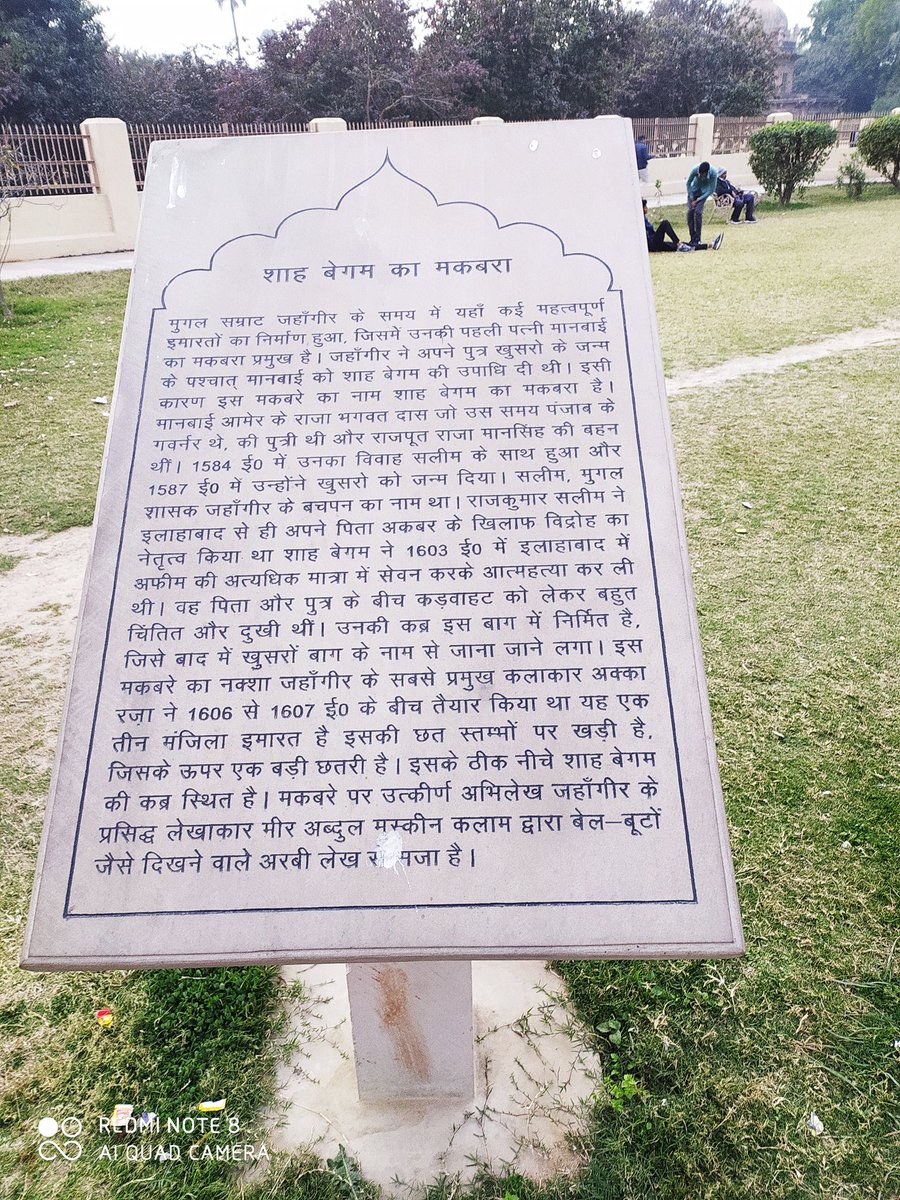 शाह बेगम का मकबरा
मुगल सम्राट जहाँगीर के समय में यहाँ कई महत्वपूर्ण
इमारतों का निर्माण हुआ, जिसमें उनकी पहली पत्नी मानबाई
का मकबरा प्रमुख है। जहाँगीर ने अपने पुत्र खुसरो के जन्म
के पश्चात् मानबाई को शाह बेगम की उपाधि दी थी। इसी
कारण इस मकबरे का नाम शाह बेगम का मकबरा है।
मानबाई आमेर के राजा भगवत दास जो उस समय पंजाब के
गवर्नर थे, की पुत्री थी और राजपूत राजा मानसिंह की बहन
थीं। 1584 ई0 में उनका विवाह सलीम के साथ हुआ और
1587 ई0 में उन्होंने खुसरो को जन्म दिया। सलीम, मुगल
शासक जहाँगीर के बचपन का नाम था। राजकुमार सलीम ने
इलाहाबाद से ही अपने पिता अकबर के खिलाफ विद्रोह का
नेतृत्व किया था शाह बेगम ने 1603 ई0 में इलाहाबाद में
अफीम की अत्यधिक मात्रा में सेवन करके आत्महत्या कर ली
थी। वह पिता और पुत्र के बीच कड़वाहट को लेकर बहुत
चिंतित और दुखी थीं। उनकी कब्र इस बाग में निर्मित है,
जिसे बाद में खुसरों बाग के नाम से जाना जाने लगा। इस
मकबरे का नक्शा जहाँगीर के सबसे प्रमुख कलाकार अक्का
रज़ा ने 1606 से 1607 ई0 के बीच तैयार किया था यह एक
तीन मंजिला इमारत है इसकी छत स्तम्भों पर खड़ी है,
जिसके ऊपर एक बड़ी छतरी है। इसके ठीक नीचे शाह बेगम
की कब्र स्थित है। मकबरे पर उत्कीर्ण अभिलेख जहाँगीर के
प्रसिद्ध लेखाकार मीर अब्दुल मुस्कीन कलाम द्वारा बेल–बूटों
जैसे दिखने वाले अरबी लेख है।
REDMI NOTE 8
AI QUAD CAMERA